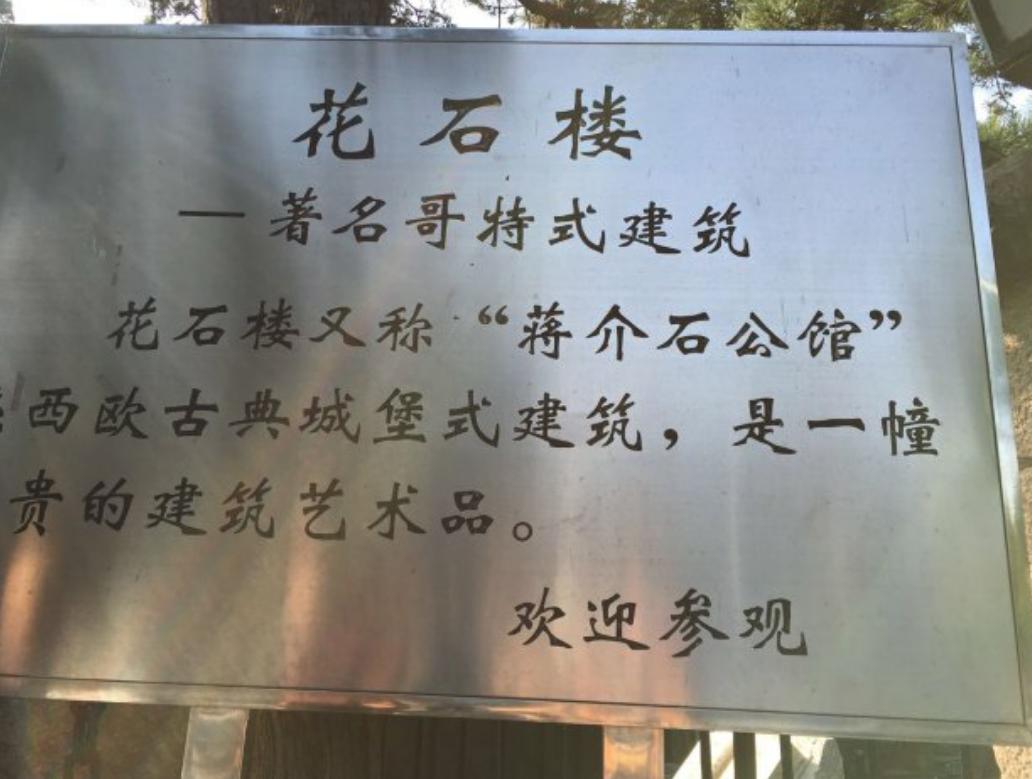 花石楼
—著名哥特式建筑
花石楼又称“蒋介石公馆”
西欧古典城堡式建筑，是一幢
贵的建筑艺术品。
欢迎参观